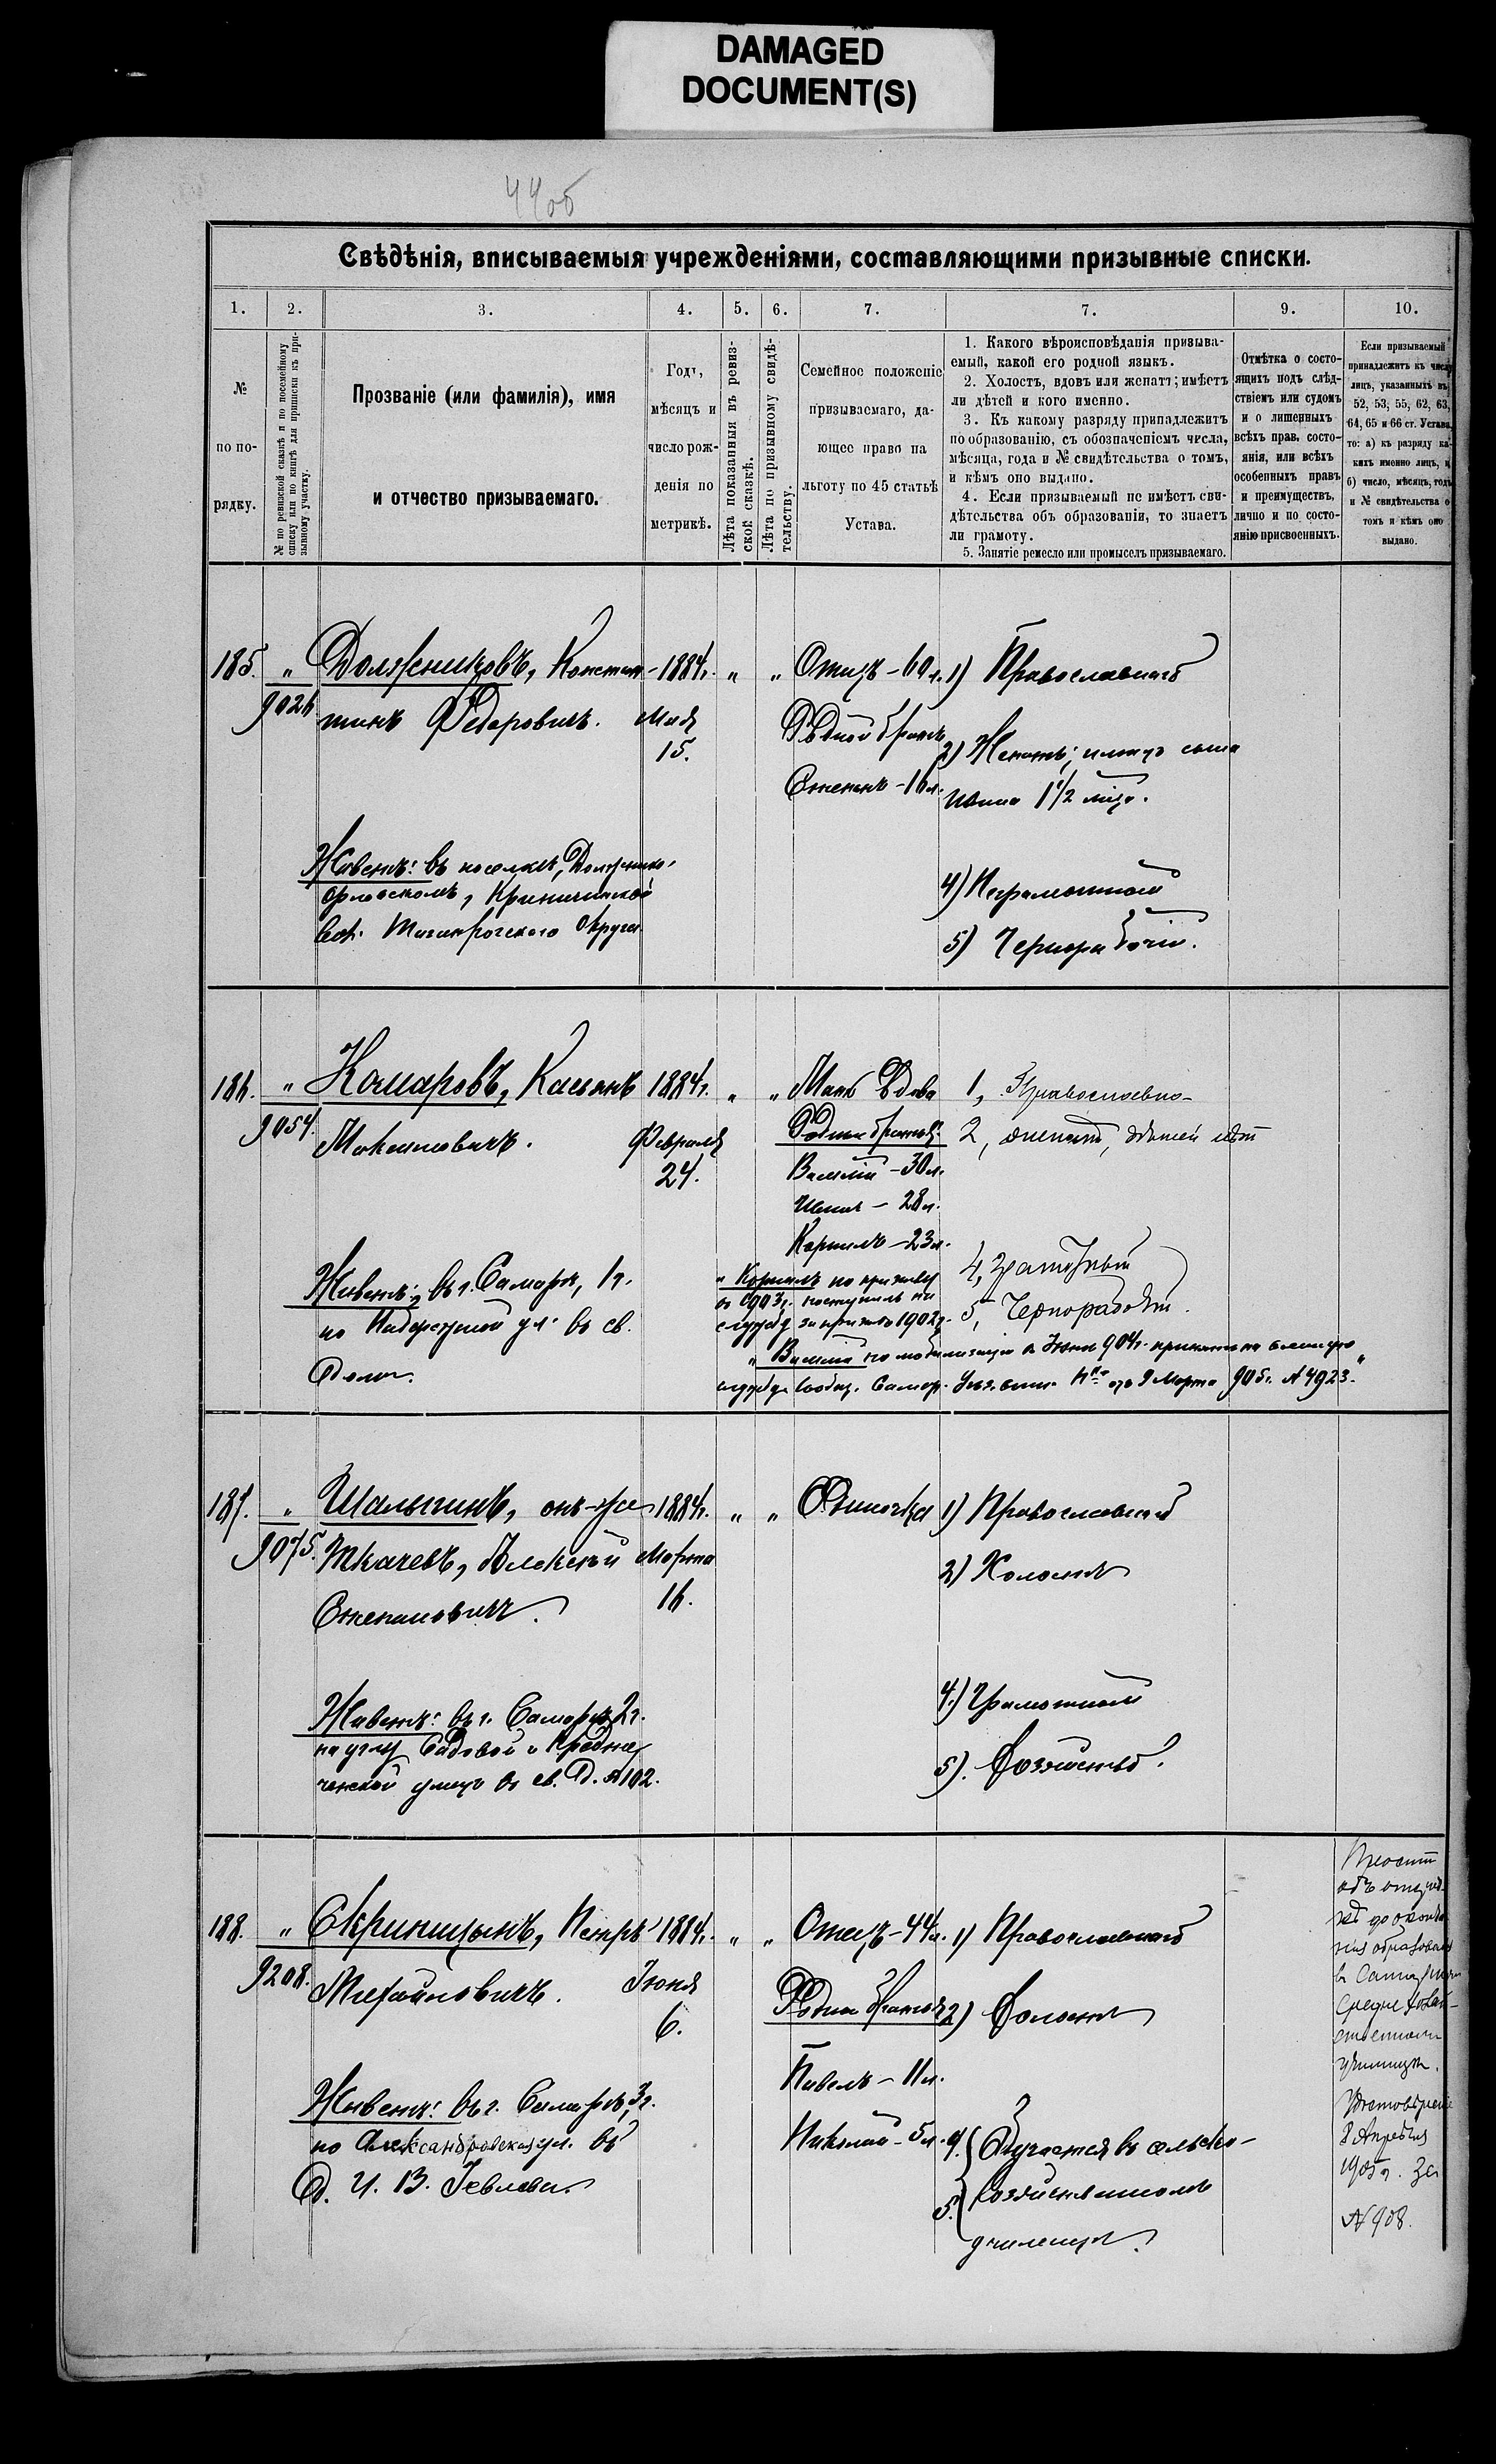 DAMAGED
DOCUMENT(S)
44об
Свѣдѣнія, вписываемыя учрежденіями, составляющими призывные списки.
1. 2. 3. 4. 5. 6. 7. 7. 9. 10.
№
по по-
рядку.
№ по ревизской сказкѣ и по посемейному
списку или по книгѣ для приписки къ при-
зывному участку.
Прозваніе (или фамилія), имя
и отчество призываемаго.
Годъ,
мѣсяцъ и
число рож-
денія по
метрикѣ.
Лѣта показанныя въ ревиз-
ской сказкѣ.
Лѣта по призывному свидѣ-
тельству.
Семейное положеніе
призываемаго, да-
ющее право на
льготу по 45 статьѣ
Устава.
1. Какого вѣроисповѣданія призыва-
емый, какой его родной языкъ.
2. Холостъ, вдовъ или женатъ; имѣетъ
ли дѣтей и кого именно.
3. Къ какому разряду принадлежитъ
по образованію, съ обозначеніемъ числа,
мѣсяца, года и № свидѣтельства о томъ,
и кѣмъ оно выдано.
4. Если призываемый не имѣетъ сви-
дѣтельства объ образованіи, то знаетъ
ли грамоту.
5. Занятіе ремесло или промыселъ призываемаго.
Отмѣтка о состо-
ящихъ подъ слѣд-
ствіемъ или судомъ
и о лишенныхъ
всѣхъ правъ состо-
янія, или всѣхъ
особенныхъ правъ
и преимуществъ,
лично и по состо-
янію присвоенныхъ.
Если призываемый
принадлежитъ къ числу
лицъ, указанныхъ въ
52, 53, 55, 62, 63,
64, 65 и 66 ст. Устава,
то: а) къ разряду ка-
кихъ именно лицъ, и
б) число, мѣсяцъ, годъ
и № свидѣтельства о
томъ и кѣмъ оно
выдано.
185. "
9026
Должниковъ, Констан-
тинъ Федоровичъ.
1884г.
Мая
15.
" "
Отецъ - 60 л.
Родной братъ
Степанъ - 16 л.
1) Православный
2) Женатъ; имѣетъ сына
Ивана 1 1/2 лѣтъ.
4) Неграмотный
5) Чернорабочій.
Живетъ: въ поселкѣ Должико-
Орловскомъ, Криничанской
вол. Таганрогскаго Округа.
186. "
9054.
Комаровъ, Касьянъ
Максимовичъ.
1884г.
Февраля
24.
" "
Мать Вдова
Родные братья:
Василій - 30 л.
Иванъ - 28 л.
Кориилъ - 23 л.
1, Православно-
2, женатъ, дѣтей нѣтъ
4, грамотный
5, Чернорабочій.
Живетъ: въ г. Самарѣ, 1 ч.
по Набережной ул. въ св.
домѣ.
" Кориилъ по призыву
въ 1903 г. поступилъ на
службу за призывъ 1902 г.
" Василій по мобилизаціи въ Іюнѣ 904 г. принятъ на военную
службу сообщ. Самар. Уѣз. воин. Н-ка отъ 9 Марта 905 г. № 4923."
187. "
9075.
Шалыгинъ, онъ-же
Ткачевъ, Алексѣй
Степановичъ.
1884г.
Марта
16.
" "
Одиночка
1) Православный
2) Холостъ
4.) Грамотный
5). Хозяйство.
Живетъ: въ г. Самарѣ, 2 ч.
на углу Садовой и Предте-
ченской улицъ въ св. д. № 102.
188. "
9208.
Скриницынъ, Петръ
Михайловичъ.
1884г.
Іюня
6.
" "
Отецъ - 44 л.
Родные братья
Павелъ - 11 л.
Николай - 5 л.
1) Православный
2) Холостъ
4. Обучается въ сельско-
5. хозяйственномъ
училищѣ.
Живетъ: въ г. Самарѣ, 3 ч.
по Александровской ул. въ
д. И. В. Іевлева.
Проситъ
объ отсроч-
кѣ до оконча-
нія образованія
въ Самарскомъ
Средне хозяй-
ственномъ
училищѣ.
Удостовѣреніе
8 Апрѣля
1905 г. за
№ 908.